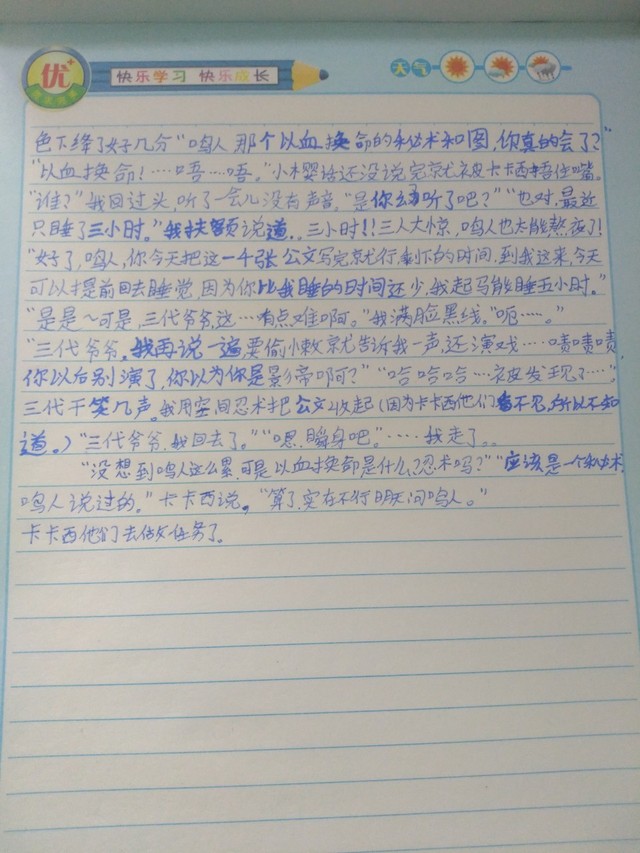 优+
快乐学习 快乐成长
天气
色下绛了好几分“鸣人,那个以血换命的秘术和图,你真的会了?”
“以血换命!····唔····唔。”小樱话还没说完就被卡卡西捂住嘴。
“谁?”我回过头,听了一会儿没有声音。“是你幻听了吧?”“也对,最近
只睡了三小时。”我扶额说道。三小时!!三人大惊,鸣人也太能熬夜了!
“好了,鸣人,你今天把这一千张公文写完就行,剩下的时间,到我这来,今天
可以提前回去睡觉,因为你比我睡的时间还少,我起码能睡五小时。”
“是是~可是,三代爷爷,这···有点难啊。”我满脸黑线。“呃·····。”
“三代爷爷,我再说一遍要偷小懒就告诉我一声,还演戏····啧啧啧,
你以后别演了,你以为你是影帝啊?”“哈哈哈···被发现了····”
三代干笑几声。我用空间忍术把公文收起(因为卡卡西他们看不见,所以不知
道。)“三代爷爷,我回去了。”“嗯,瞬身吧。”·····我走了。。
“没想到鸣人这么累,可是以血换命是什么?忍术吗?”“应该是一个秘术
鸣人说过的。”卡卡西说。“算了,实在不行明天问鸣人。”
卡卡西他们去做任务了。